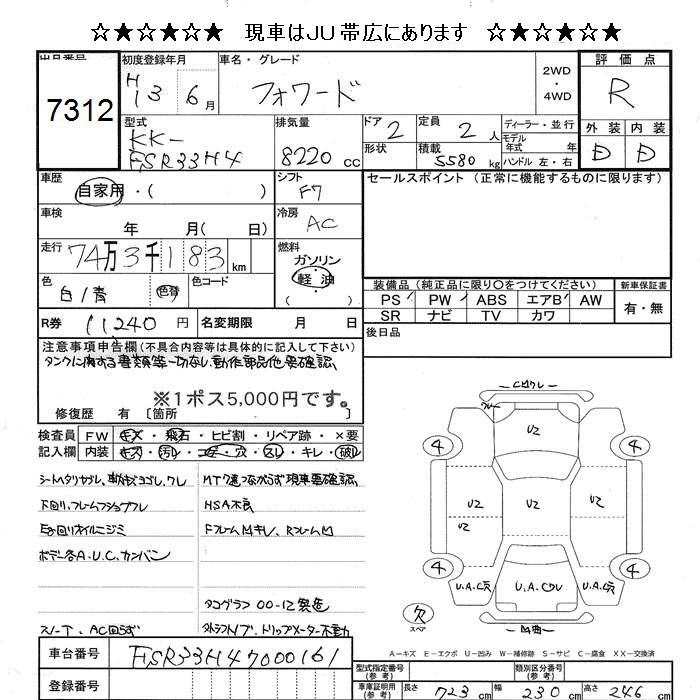 ☆★☆★☆★ 現車はJU帯広にあります ☆★☆★☆★
出品番号
7312
初度登録年月
H13 6月
車名・グレード
フォワード
2WD
・
4WD
評価点
R
型式
KK-
FSR33H4
排気量
8220 cc
ドア 2
形状
定員 2 人
積載 5580 kg
ディーラー・並行
モデル年式 年
ハンドル 左・右
外装 内装
D D
車歴
自家用・( )
シフト
F7
セールスポイント (正常に機能するものに限ります)
車検
年 月( 日)
冷房
AC
走行
74万3千183 km
燃料
ガソリン
・
軽油
( )
色
白/青
色替
色コード
装備品 (純正品に限り○をつけてください)
新車保証書
PS PW ABS エアB AW
SR ナビ TV カワ
有・無
R券 11240 円
名変期限 月 日
後日品
注意事項申告欄(不具合内容等は具体的に記入して下さい)
タンクに関する書類等一切なし、動作部品他要確認、
※1ポス5,000円です。
修復歴 有 〔箇所
検査員
記入欄
FW キズ・飛石・ヒビ割・リペア跡・×要
内装 キズ・汚レ・コゲ・穴・スレ・キレ・破レ
下回り、フレームサビ
MT 現車要確認、
HSA不良
ボデー各A.U.C.カンバン
タコグラフ 00-12 製造
スノーT、AC回らず
トリップメーター不動
U2
U2
U2
U2
U2
4
4
4
4
U.A.C穴
U.A.Cワレ
U.A.C穴
欠
スペア
A-キズ E-エクボ U-凹み W-補修跡 S-サビ C-腐食 XX-交換済
車台番号
FSR33H47000161
登録番号
型式指定番号
(参考)
類別区分番号
(参考)
車庫証明用
(参考)
長さ 723 cm 幅 230 cm 高さ 246 cm